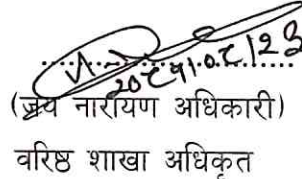 २०८१।०८।२३
(जय नारायण अधिकारी)
वरिष्ठ शाखा अधिकृत